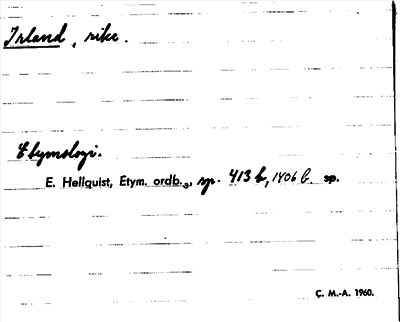 Irland, rike.
Etymologi.
E. Hellquist, Etym. ordb.3, sp. 413 b, 1406 b. sp.
C. M.-A. 1960.